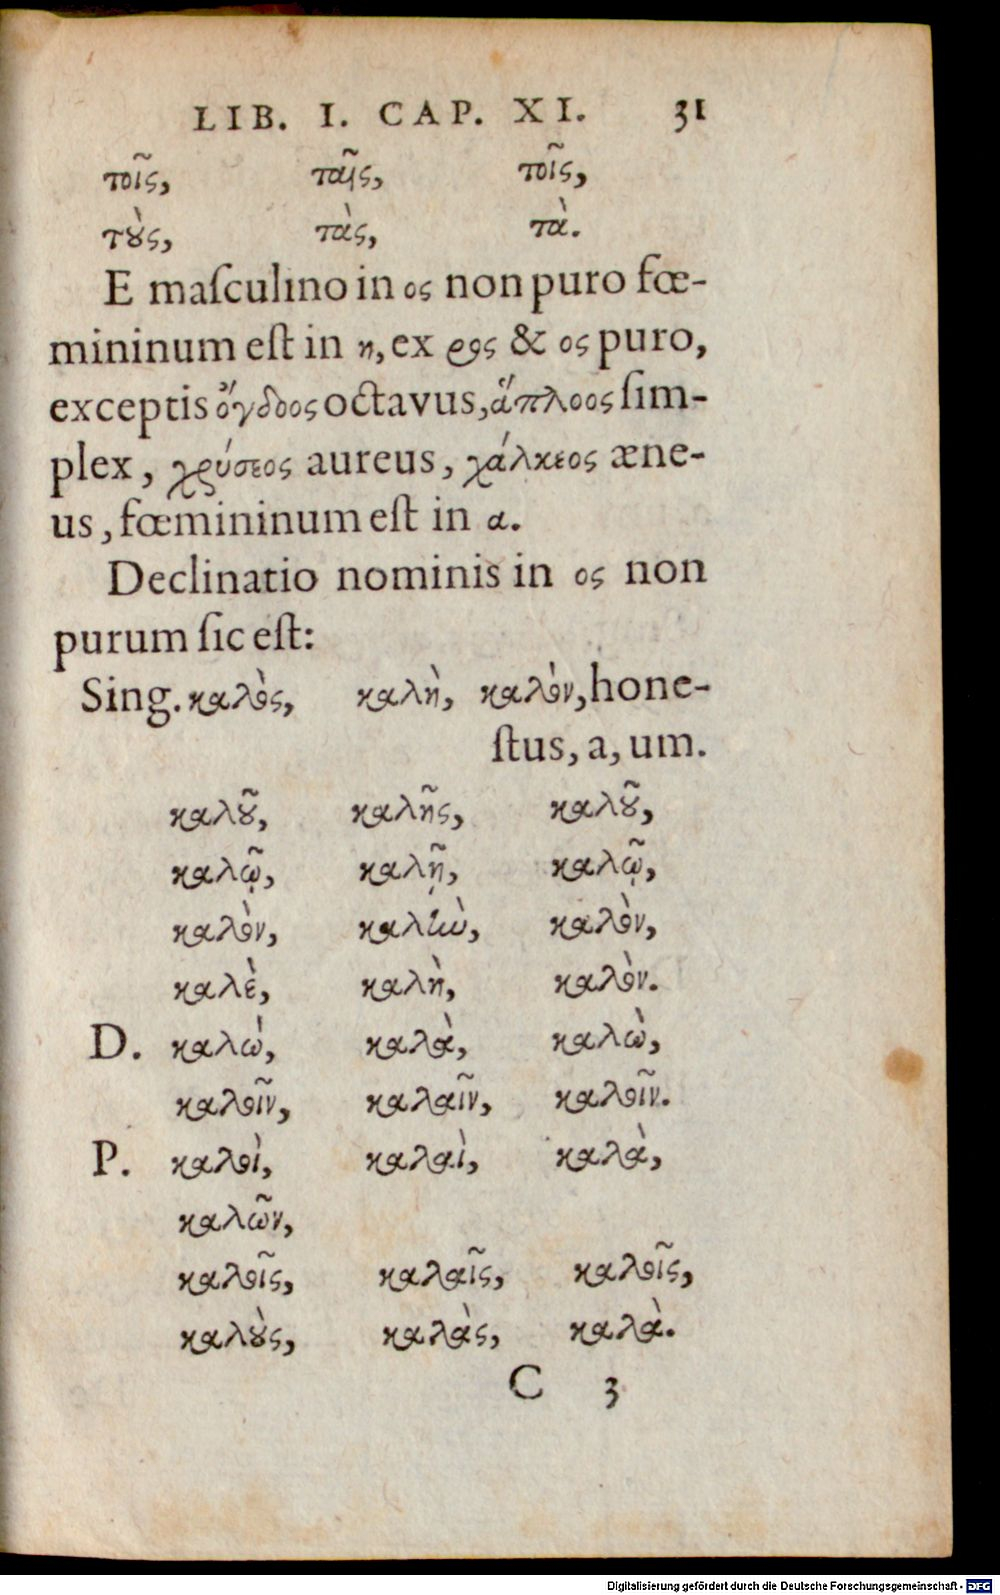 LIB. I. CAP. XI. 31
τοῖς, ταῖς, τοῖς,
τȣ̀ς, τὰς, τὰ.
E maſculino in ος non puro fœ-
mininum eſt in η, ex ρος & ος puro,
exceptis ὄγδοος octavus, ἅπλοος ſim-
plex, χρύσεος aureus, χάλκεος æne-
us, fœmininum eſt in α.
Declinatio nominis in ος non
purum ſic eſt:
Sing. καλὸς, καλὴ, καλὸν, hone-
ſtus, a, um.
καλȣ͂, καλῆς, καλȣ͂,
καλῷ, καλῇ, καλῷ,
καλὸν, καλὴν, καλὸν,
καλὲ, καλὴ, καλὸν.
D. καλὼ, καλὰ, καλὼ,
καλοῖν, καλαῖν, καλοῖν.
P. καλοὶ, καλαὶ, καλὰ,
καλῶν,
καλοῖς, καλαῖς, καλοῖς,
καλȣ̀ς, καλὰς, καλὰ.
C 3
Digitalisierung gefördert durch die Deutsche Forschungsgemeinschaft - DFG